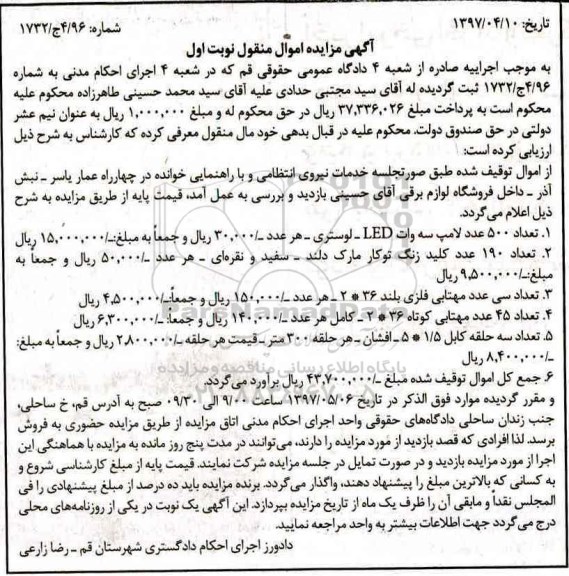 تاریخ: ۱۳۹۷/۰۴/۱۰
شماره: ۴/۹۶ج/۱۷۳۲
آگهی مزایده اموال منقول نوبت اول
به موجب اجراییه صادره از شعبه ۴ دادگاه عمومی حقوقی قم که در شعبه ۴ اجرای احکام مدنی به شماره
۴/۹۶ج/۱۷۳۲ ثبت گردیده له آقای سید مجتبی حدادی علیه آقای سید محمد حسینی طاهرزاده محکوم علیه
محکوم است به پرداخت مبلغ ۳۷,۳۳۶,۰۲۶ ریال در حق محکوم له و مبلغ ۱,۰۰۰,۰۰۰ ریال به عنوان نیم عشر
دولتی در حق صندوق دولت. محکوم علیه در قبال بدهی خود مال منقول معرفی کرده که کارشناس به شرح ذیل
ارزیابی کرده است:
از اموال توقیف شده طبق صورتجلسه خدمات نیروی انتظامی و با راهنمایی خوانده در چهارراه عمار یاسر ـ نبش
آذر ـ داخل فروشگاه لوازم برقی آقای حسینی بازدید و بررسی به عمل آمد، قیمت پایه از طریق مزایده به شرح
ذیل اعلام می‌گردد.
۱. تعداد ۵۰۰ عدد لامپ سه وات LED ـ لوستری ـ هر عدد ـ/۳۰,۰۰۰ ریال و جمعاً به مبلغ:ـ/۱۵,۰۰۰,۰۰۰ ریال
۲. تعداد ۱۹۰ عدد کلید زنگ توکار مارک دلند ـ سفید و نقره‌ای ـ هر عدد ـ/۵۰,۰۰۰ ریال و جمعاً به
مبلغ:ـ/۹,۵۰۰,۰۰۰ ریال
۳. تعداد سی عدد مهتابی فلزی بلند ۳۶ * ۲ ـ هر عدد ـ/۱۵۰,۰۰۰ ریال و جمعاً:ـ/۴,۵۰۰,۰۰۰ ریال
۴. تعداد ۴۵ عدد مهتابی کوتاه ۳۶ * ۱ ـ کامل هر عدد ـ/۱۴۰,۰۰۰ ریال و جمعاً: ـ/۶,۳۰۰,۰۰۰ ریال
۵. تعداد سه حلقه کابل ۱/۵ * ۵ ـ افشان ـ هر حلقه ۳۰۰ متر ـ قیمت هر حلقه ـ/۲,۸۰۰,۰۰۰ ریال و جمعاً به مبلغ:
ـ/۸,۴۰۰,۰۰۰ ریال
۶. جمع کل اموال توقیف شده مبلغ ـ/۴۳,۷۰۰,۰۰۰ ریال برآورد می‌گردد.
و مقرر گردیده موارد فوق الذکر در تاریخ ۱۳۹۷/۰۵/۰۶ ساعت ۹/۰۰ الی ۰۹/۳۰ صبح به آدرس قم، خ ساحلی،
جنب زندان ساحلی دادگاه‌های حقوقی واحد اجرای احکام مدنی اتاق مزایده از طریق مزایده حضوری به فروش
برسد. لذا افرادی که قصد بازدید از مورد مزایده را دارند، می‌توانند در مدت پنج روز مانده به مزایده با هماهنگی این
اجرا از مورد مزایده بازدید و در صورت تمایل در جلسه مزایده شرکت نمایند. قیمت پایه از مبلغ کارشناسی شروع و
به کسانی که بالاترین مبلغ را پیشنهاد دهند، واگذار می‌گردد. برنده مزایده باید ده درصد از مبلغ پیشنهادی را فی
المجلس نقداً و مابقی آن را ظرف یک ماه از تاریخ مزایده بپردازد. این آگهی یک نوبت در یکی از روزنامه‌های محلی
درج می‌گردد جهت اطلاعات بیشتر به واحد مراجعه نمایید.
دادورز اجرای احکام دادگستری شهرستان قم ـ رضا زارعی
ParsNamadData
پایگاه اطلاع رسانی مناقصه و مزایده